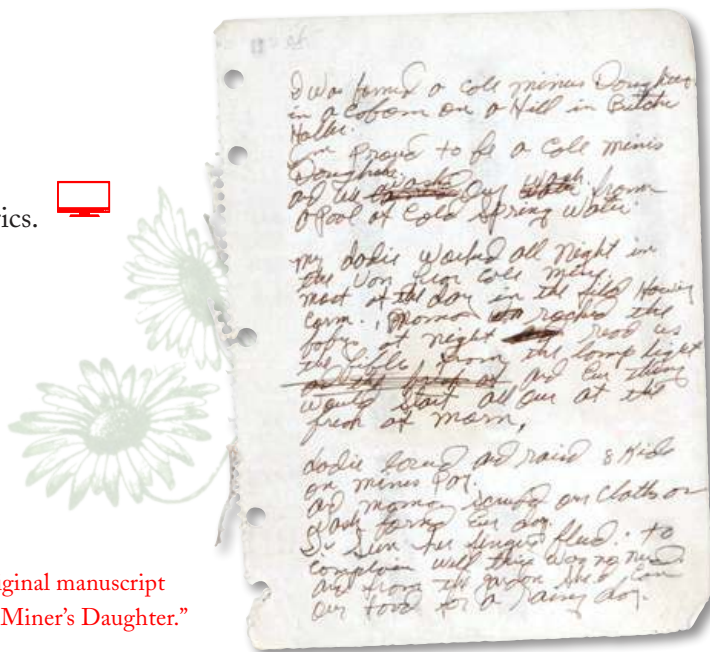 rics.
I was borned a cole minus Doughter
in a cobom on a Hill in Butche
Holler.
im Proud to be a Cole minis
Doughter.
ad we wash our wash from
a Pool at Cold Spring water.
my dadie worked all Night in
the Von Lear Cole mine.
most of the day in the fild Howing
Corn. , moma rocked the
babys at night read us
the bible from the lamp light
ad the break at ad ever thing
would start all over at the
break at morn,
dadie loved ad raised 8 Kids
on minis Pay.
ad moma scrubed our Cloths on
a wash bord ever day.
I've seen her fingers bleed. to
complain well there was no need
and from the gardon she'd Can
our food for a rainy day.
iginal manuscript
Miner's Daughter."